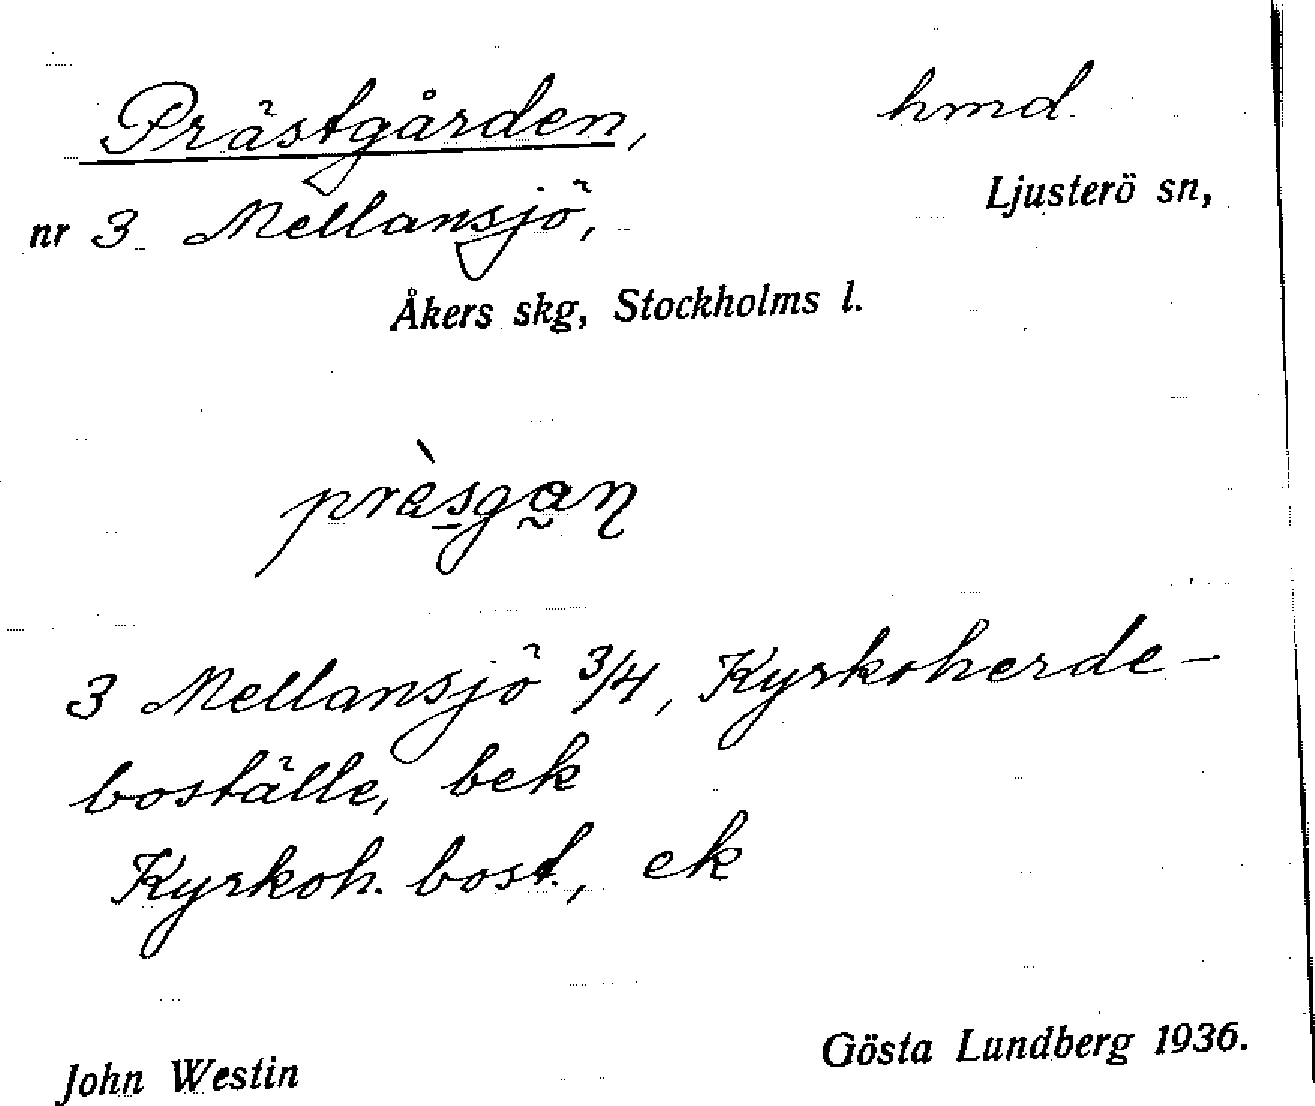 Prästgården, hmd.
Ljusterö sn,
nr 3 Mellansjö,
Åkers skg, Stockholms l.
3 Mellansjö 3/4, Kyrkoherde-
boställe, bek
Kyrkoh. bost., ek
John Westin Gösta Lundberg 1936.